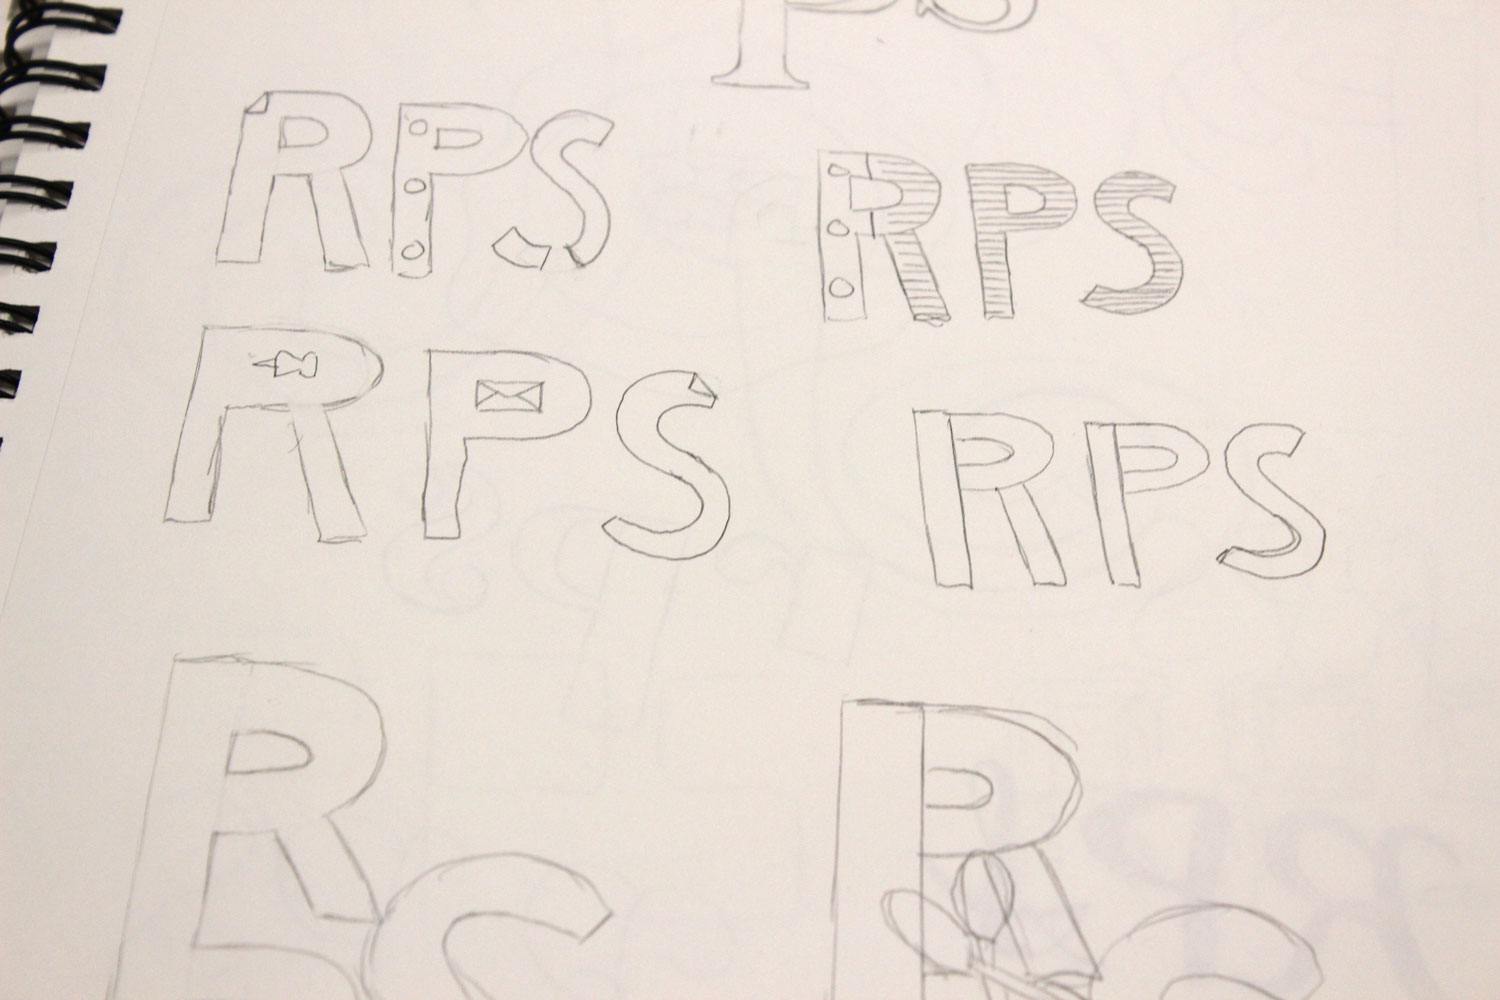 PS
RPS
RPS
RPS
RPS
RS
RS